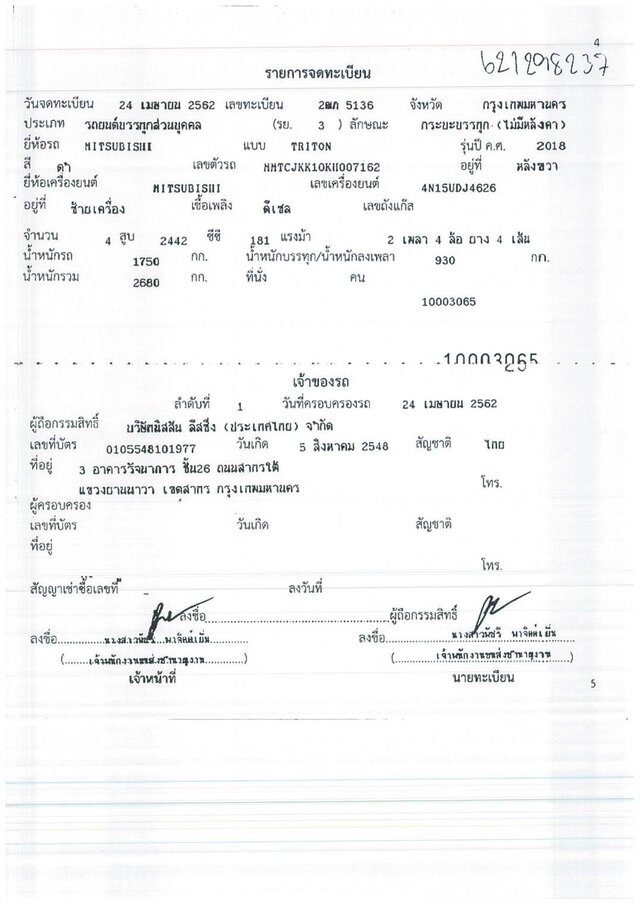 4
621298237
รายการจดทะเบียน
วันจดทะเบียน 24 เมษายน 2562 เลขทะเบียน 2ฒภ 5136 จังหวัด กรุงเทพมหานคร
ประเภท รถยนต์บรรทุกส่วนบุคคล (รย. 3 ) ลักษณะ กระบะบรรทุก (ไม่มีหลังคา)
ยี่ห้อรถ MITSUBISHI แบบ TRITON รุ่นปี ค.ศ. 2018
สี ดำ เลขตัวรถ MMTCJKK10KH007162 อยู่ที่ หลังขวา
ยี่ห้อเครื่องยนต์ MITSUBISHI เลขเครื่องยนต์ 4N15UDJ4626
อยู่ที่ ซ้ายเครื่อง เชื้อเพลิง ดีเซล เลขถังแก๊ส
จำนวน 4 สูบ 2442 ซีซี 181 แรงม้า 2 เพลา 4 ล้อ ยาง 4 เส้น
น้ำหนักรถ 1750 กก. น้ำหนักบรรทุก/น้ำหนักลงเพลา 930 กก.
น้ำหนักรวม 2680 กก. ที่นั่ง คน
10003065
10003065
เจ้าของรถ
ลำดับที่ 1 วันที่ครอบครองรถ 24 เมษายน 2562
ผู้ถือกรรมสิทธิ์ บริษัทนิสสัน ลีสซิ่ง (ประเทศไทย) จำกัด
เลขที่บัตร 0105548101977 วันเกิด 5 สิงหาคม 2548 สัญชาติ ไทย
ที่อยู่ 3 อาคารรัจนาการ ชั้น26 ถนนสาทรใต้
แขวงยานนาวา เขตสาทร กรุงเทพมหานคร โทร.
ผู้ครอบครอง
เลขที่บัตร วันเกิด สัญชาติ
ที่อยู่
โทร.
สัญญาเช่าซื้อเลขที่ - ลงวันที่
ลงชื่อ ผู้ถือกรรมสิทธิ์
ลงชื่อ นางสาวพัชรี ลงชื่อ นางสาวพัชรี
(เจ้าพนักงานขนส่งชำนาญงาน) (เจ้าพนักงานขนส่งชำนาญงาน)
เจ้าหน้าที่ นายทะเบียน
5